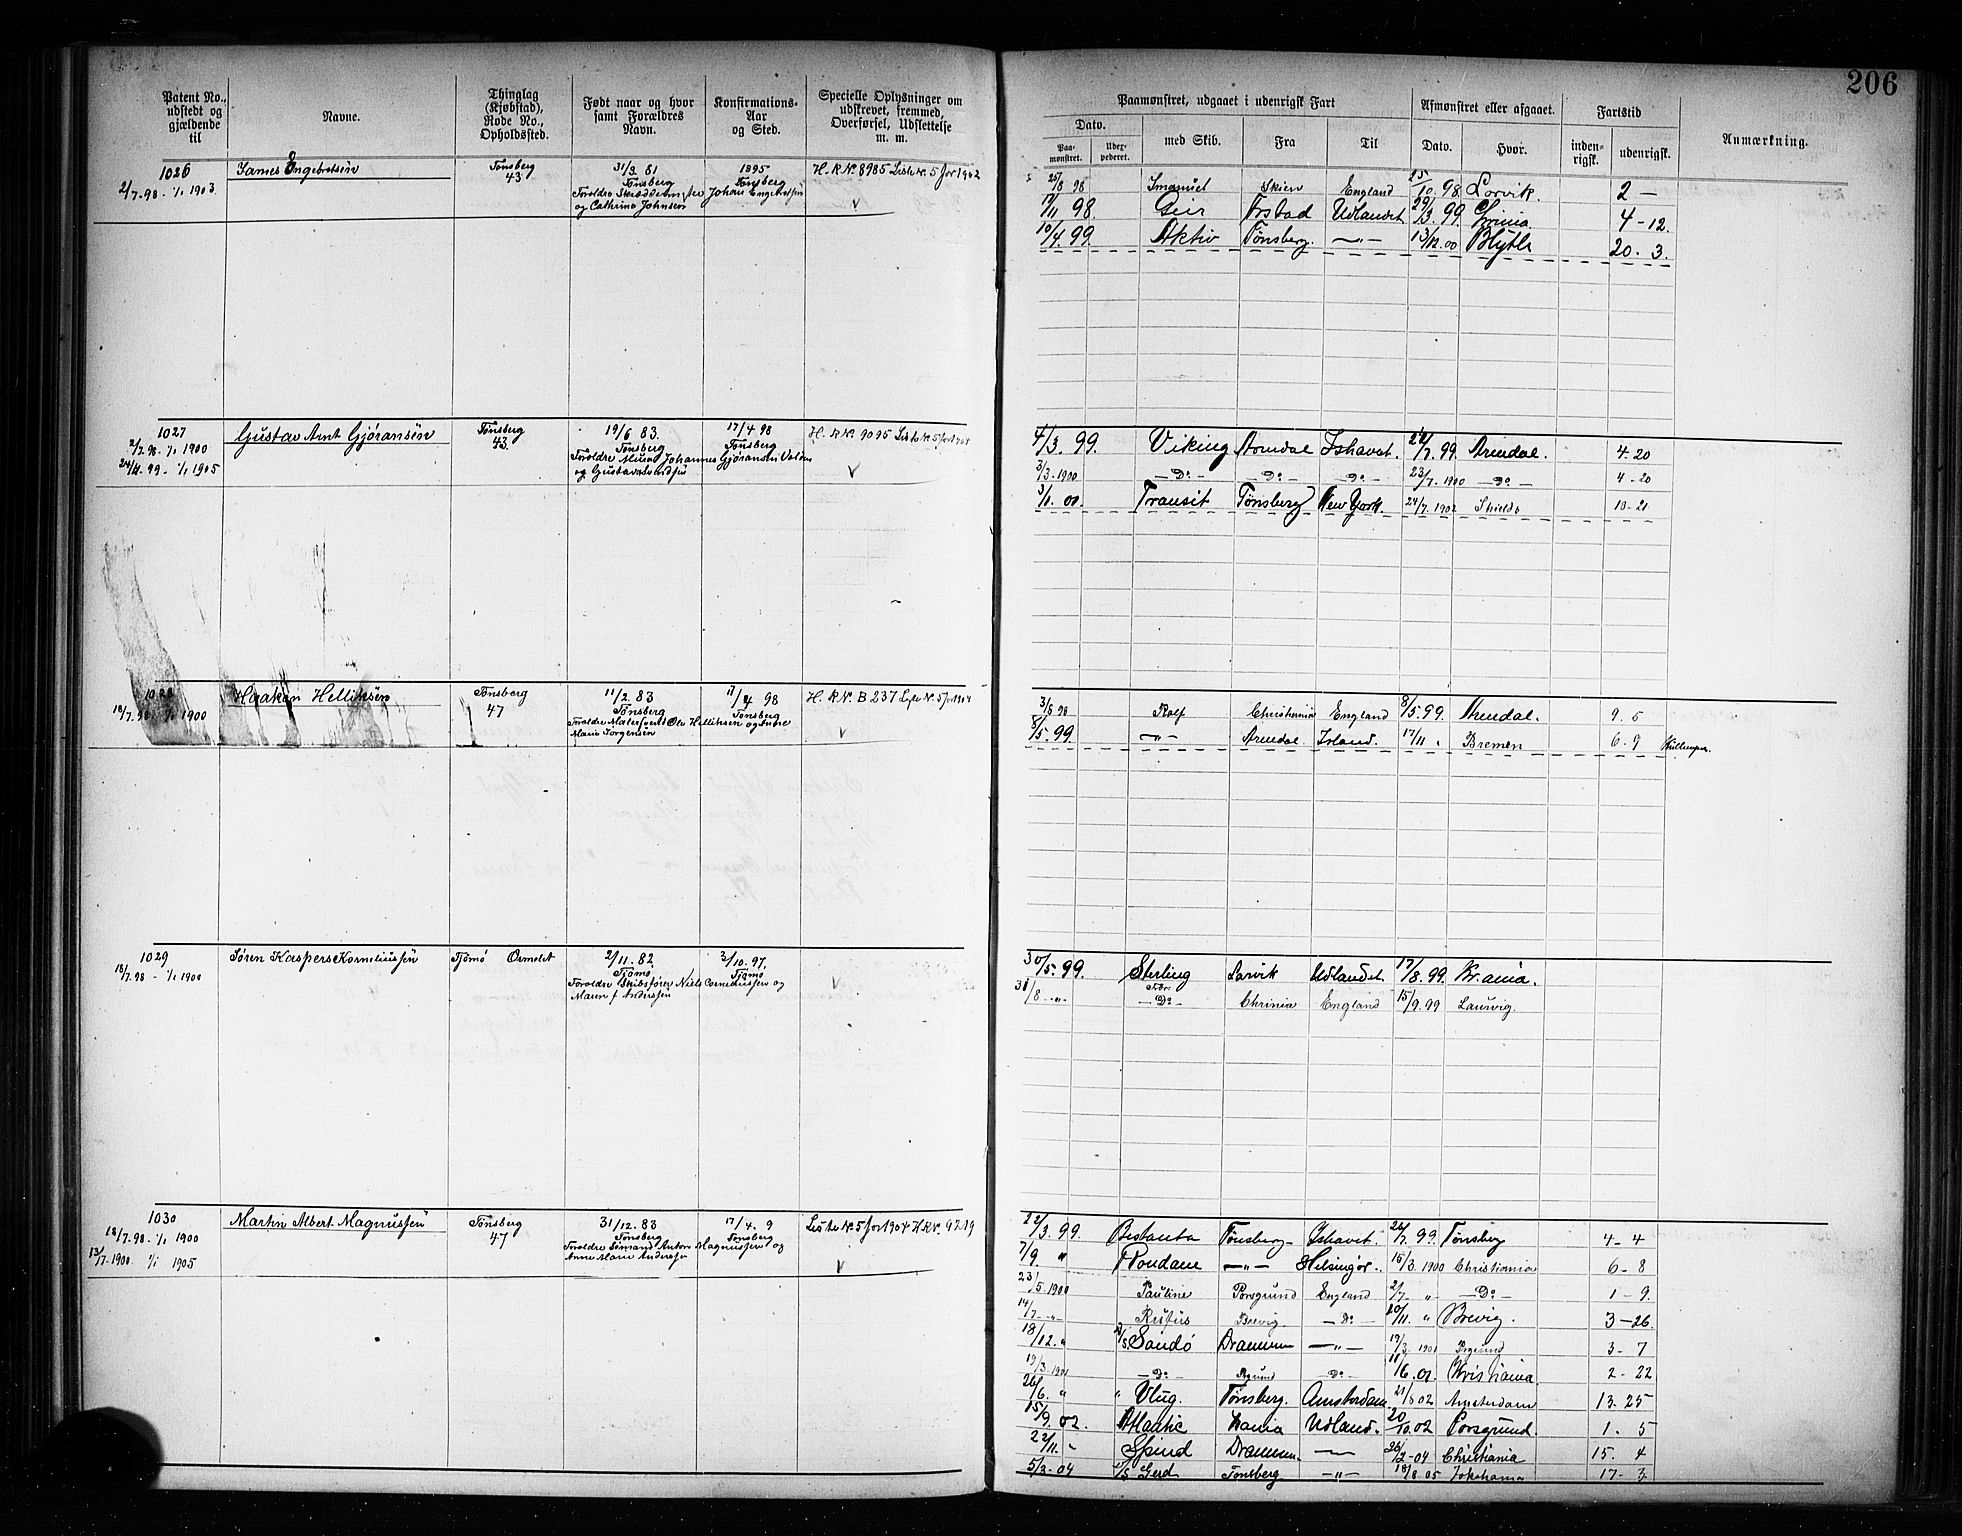 206
Patent No., udstedt og gjældende til
Navne.
Thinglag (Kjøbstad), Rode No., Opholdssted.
Født naar og hvor samt Forældres Navn.
Konfirmations-Aar og Sted.
Specielle Oplysninger om udskrevet, fremmed, Overførsel, Udslettelse m. m.
Paamønstret, udgaaet i udenrigsk Fart
Afmønstret eller afgaaet.
Fartstid
Anmærkning.
Dato.
Paa-mønstret.
Udex-pederet.
med Skib.
Fra
Til
Dato.
Hvor.
inden-rigsk.
udenrigsk.
1026 James Engebretsen Tønsberg 31/3. 81 1895 H. R. No. 8985 Liste No. 5 for 1902
2/7. 98 - 1/1 1903 43 Tønsberg Tønsberg
Forældre Johan Engebretsen
og Cathrine Johnsen V
25/8 98 Imanuel Skien England 25/10. 98 Larvik. 2 —
17/11 98. Geir Fr.stad Udlandet 29/3. 99. Chrinia. 4 - 12.
10/4. 99. Aktiv Tønsberg. —„— 13/12. 00 Blyth 20. 3.
1027 Gustav Arnt Gjøransen Tønsberg 19/6 83. 17/4 98 H. R. No. 9095 Liste No. 5 for 1904
2/7. 98 - 1/1 1900 43. Tønsberg Tønsberg
24/11. 99 - 1/1 1905 Forældre Johannes Gjøransen
og V
4/3. 99. Viking Arendal Ishavet. 24/7. 99 Arendal. 4. 20
3/3. 1900 — Do — — Do — — Do — 23/7. 1900 — Do — 4 - 20
3/1. 01. Transit Tønsberg New York. 24/7. 1902 Shields 10 - 21
1028 Haaken Helliksen Tønsberg 11/2. 83 17/4 98 H. R. No. B 237 Liste No. 5 for 1904
18/7. 98 - 1/1 1900 47 Tønsberg Tønsberg
Forældre Ole Helliksen og
Marie Jørgensen V
3/8 98 Rolf Christiania England 8/5. 99. Arendal. 9. 5
8/5. 99. —„— Arendal. Island. 17/11 „ Bremen 6. 9
1029 Søren Kaspers Korneliussen Tjømø Ormelet 2/11. 82 3/10. 97.
18/7. 98 - 1/1 1900 Tjømø Tjømø
Forældre Skibsfører Niels Corneliussen og
Maren f. Anderssen V
30/5. 99. Sterling Larvik Udlandet. 17/8. 99. Kr.ania.
31/8 -„- — Do — Chrinia England 15/9. 99 Laurvig.
1030 Martin Albert Magnussen Tønsberg 31/12. 83 17/4. 9 Liste No. 5 for 1904 H. R. No. 9219
18/7. 98 - 1/1 1900 47 Tønsberg Tønsberg
13/7. 1900 1/1 1905 Forældre Anton Magnussen og
Anne Marie V
22/3. 99. Tønsberg Ishavet. 26/7. 99. Tønsberg 4 - 4
7/9. „ Rondane —„— Helsingør. 15/3. 1900 Christiania 6 - 8
23/5. 1900 Pauline Porsgrund England 2/7. „ — Do — 1 - 9.
14/7 -„- Rufus Brevig. — Do — 10/11. „ Brevig. 3 - 26.
18/12. „ Sandø Drammen —„— 19/3. 1901 3 - 7
19/3. 1901 — Do — Do 11/6. 01. Kristiania. 2 - 22
26/6. „ „ Vlug. Tønsberg. Amsterdam. 21/8 02 Amsterdam 13. 25
15/9. 02. Atlantic Kania Udland. 20/10. 02 Porsgrund. 1. 5
22/11. „ Spind Drammen. —„— 26/2 - 04 Christiania 15. 4
5/3 - 04 S/S Gerd Tønsberg —„— 18/8 05 Jokohama 17 - 3